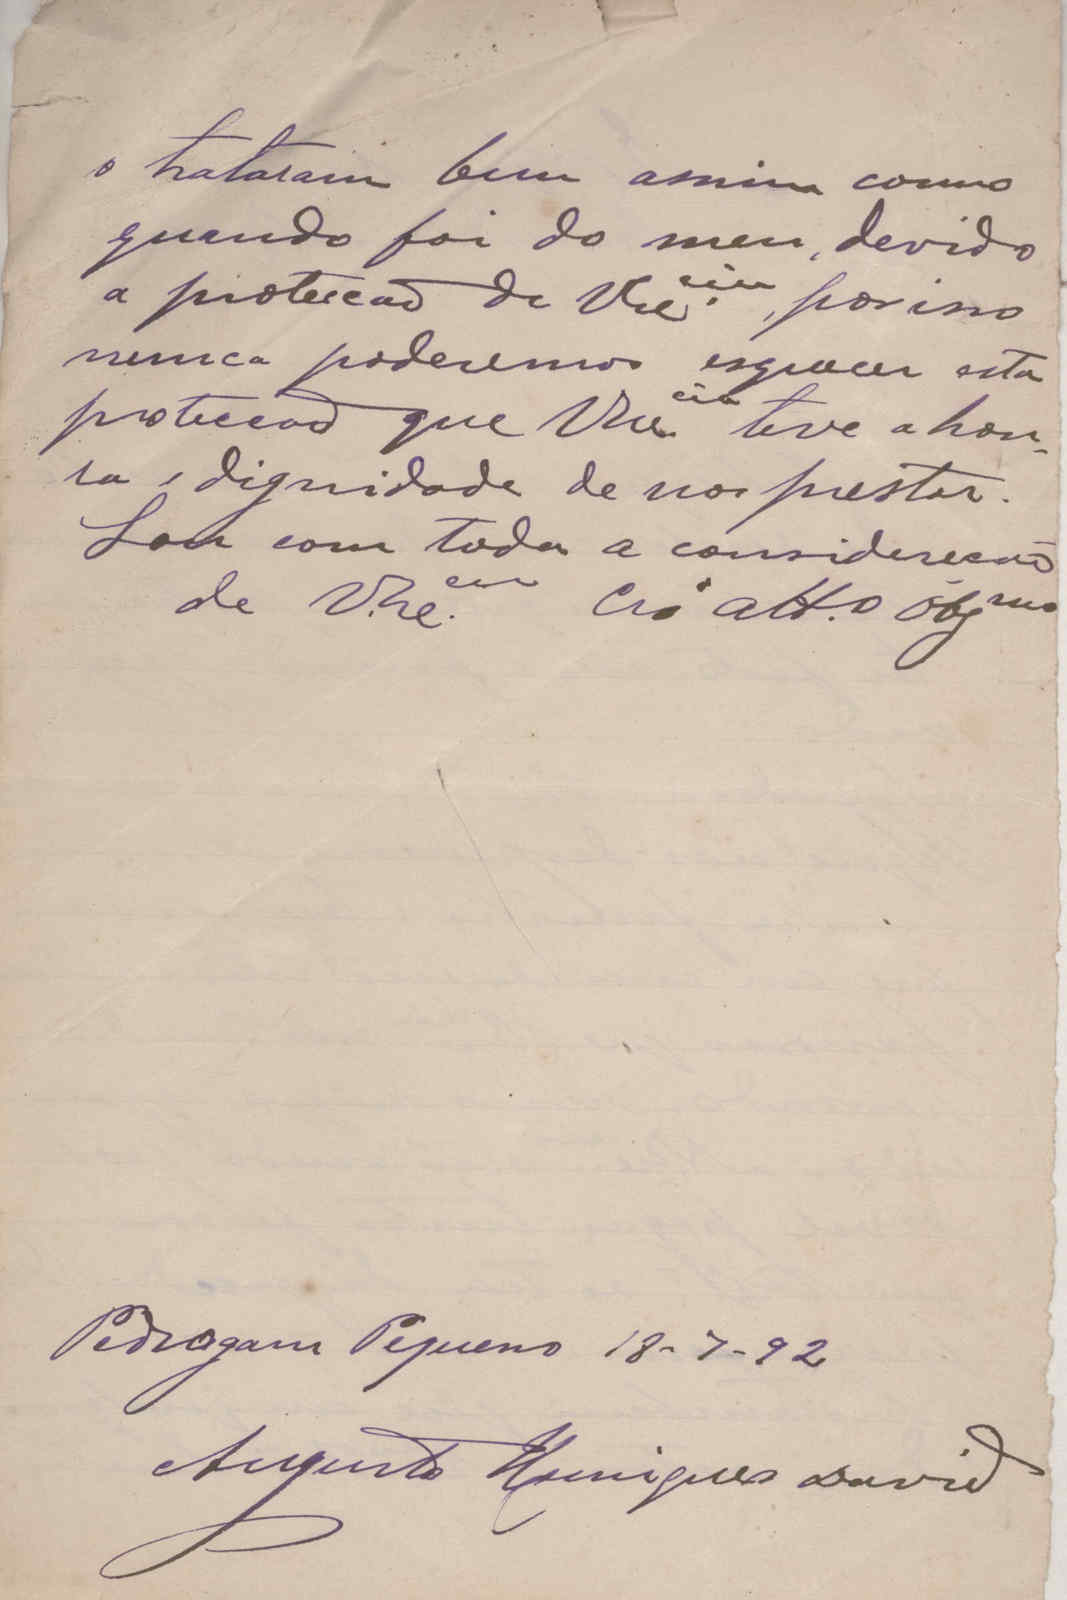 o trataram bem assim como
quando foi do meu, devido
a proteccaõ de V.Exª cia, porisso
nunca poderemos esquecer esta
proteccaõ que V.Exª cia teve a hon-
ra e dignidade de nos prestar.
Sou com toda a consideracaõ
de V.Exª cia Crº attº Obgmo
Pedrogam Pequeno 18-7-92
Augusto Henriques David